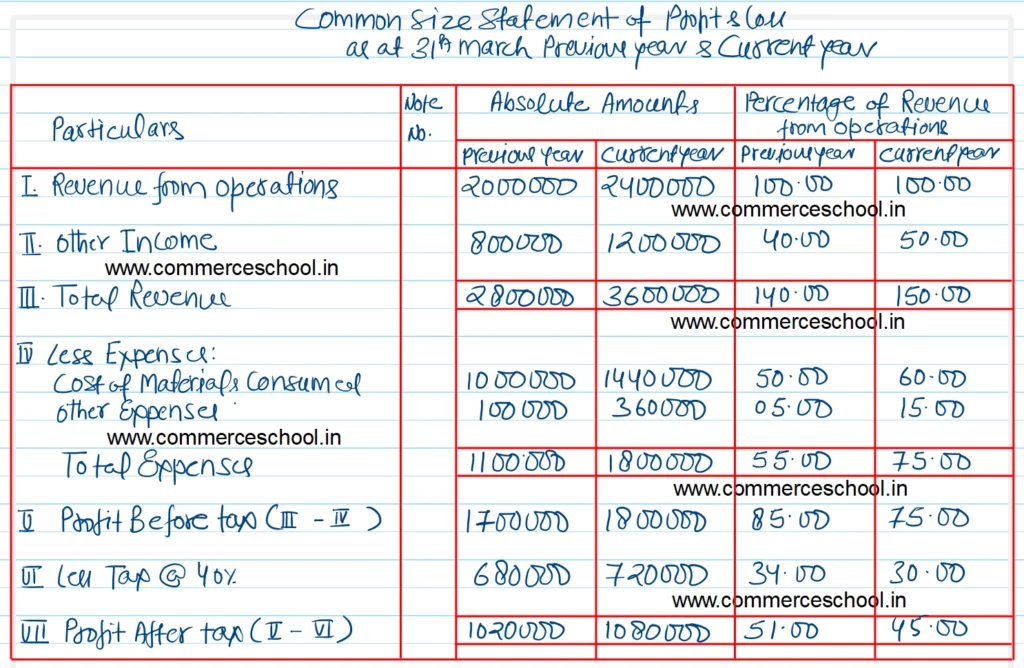 Common Size Statement of Profit & Loss
as at 31th march Previous year & Current year
Particulars Note No. Absolute Amounts Percentage of Revenue from operations
Previous year Current year Previous year Current year
I. Revenue from operations 2000000 2400000 100.00 100.00
www.commerceschool.in
II. Other Income 800000 1200000 40.00 50.00
www.commerceschool.in
III. Total Revenue 2800000 3600000 140.00 150.00
www.commerceschool.in
IV Less Expenses:
Cost of Materials Consumed 1000000 1440000 50.00 60.00
other Expenses 100000 360000 05.00 15.00
www.commerceschool.in
Total Expenses 1100000 1800000 55.00 75.00
www.commerceschool.in
V Profit Before tax (III - IV) 1700000 1800000 85.00 75.00
VI Less Tax @ 40% 680000 720000 34.00 30.00
www.commerceschool.in
VII Profit After tax (V - VI) 1020000 1080000 51.00 45.00